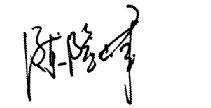 陈隆峰